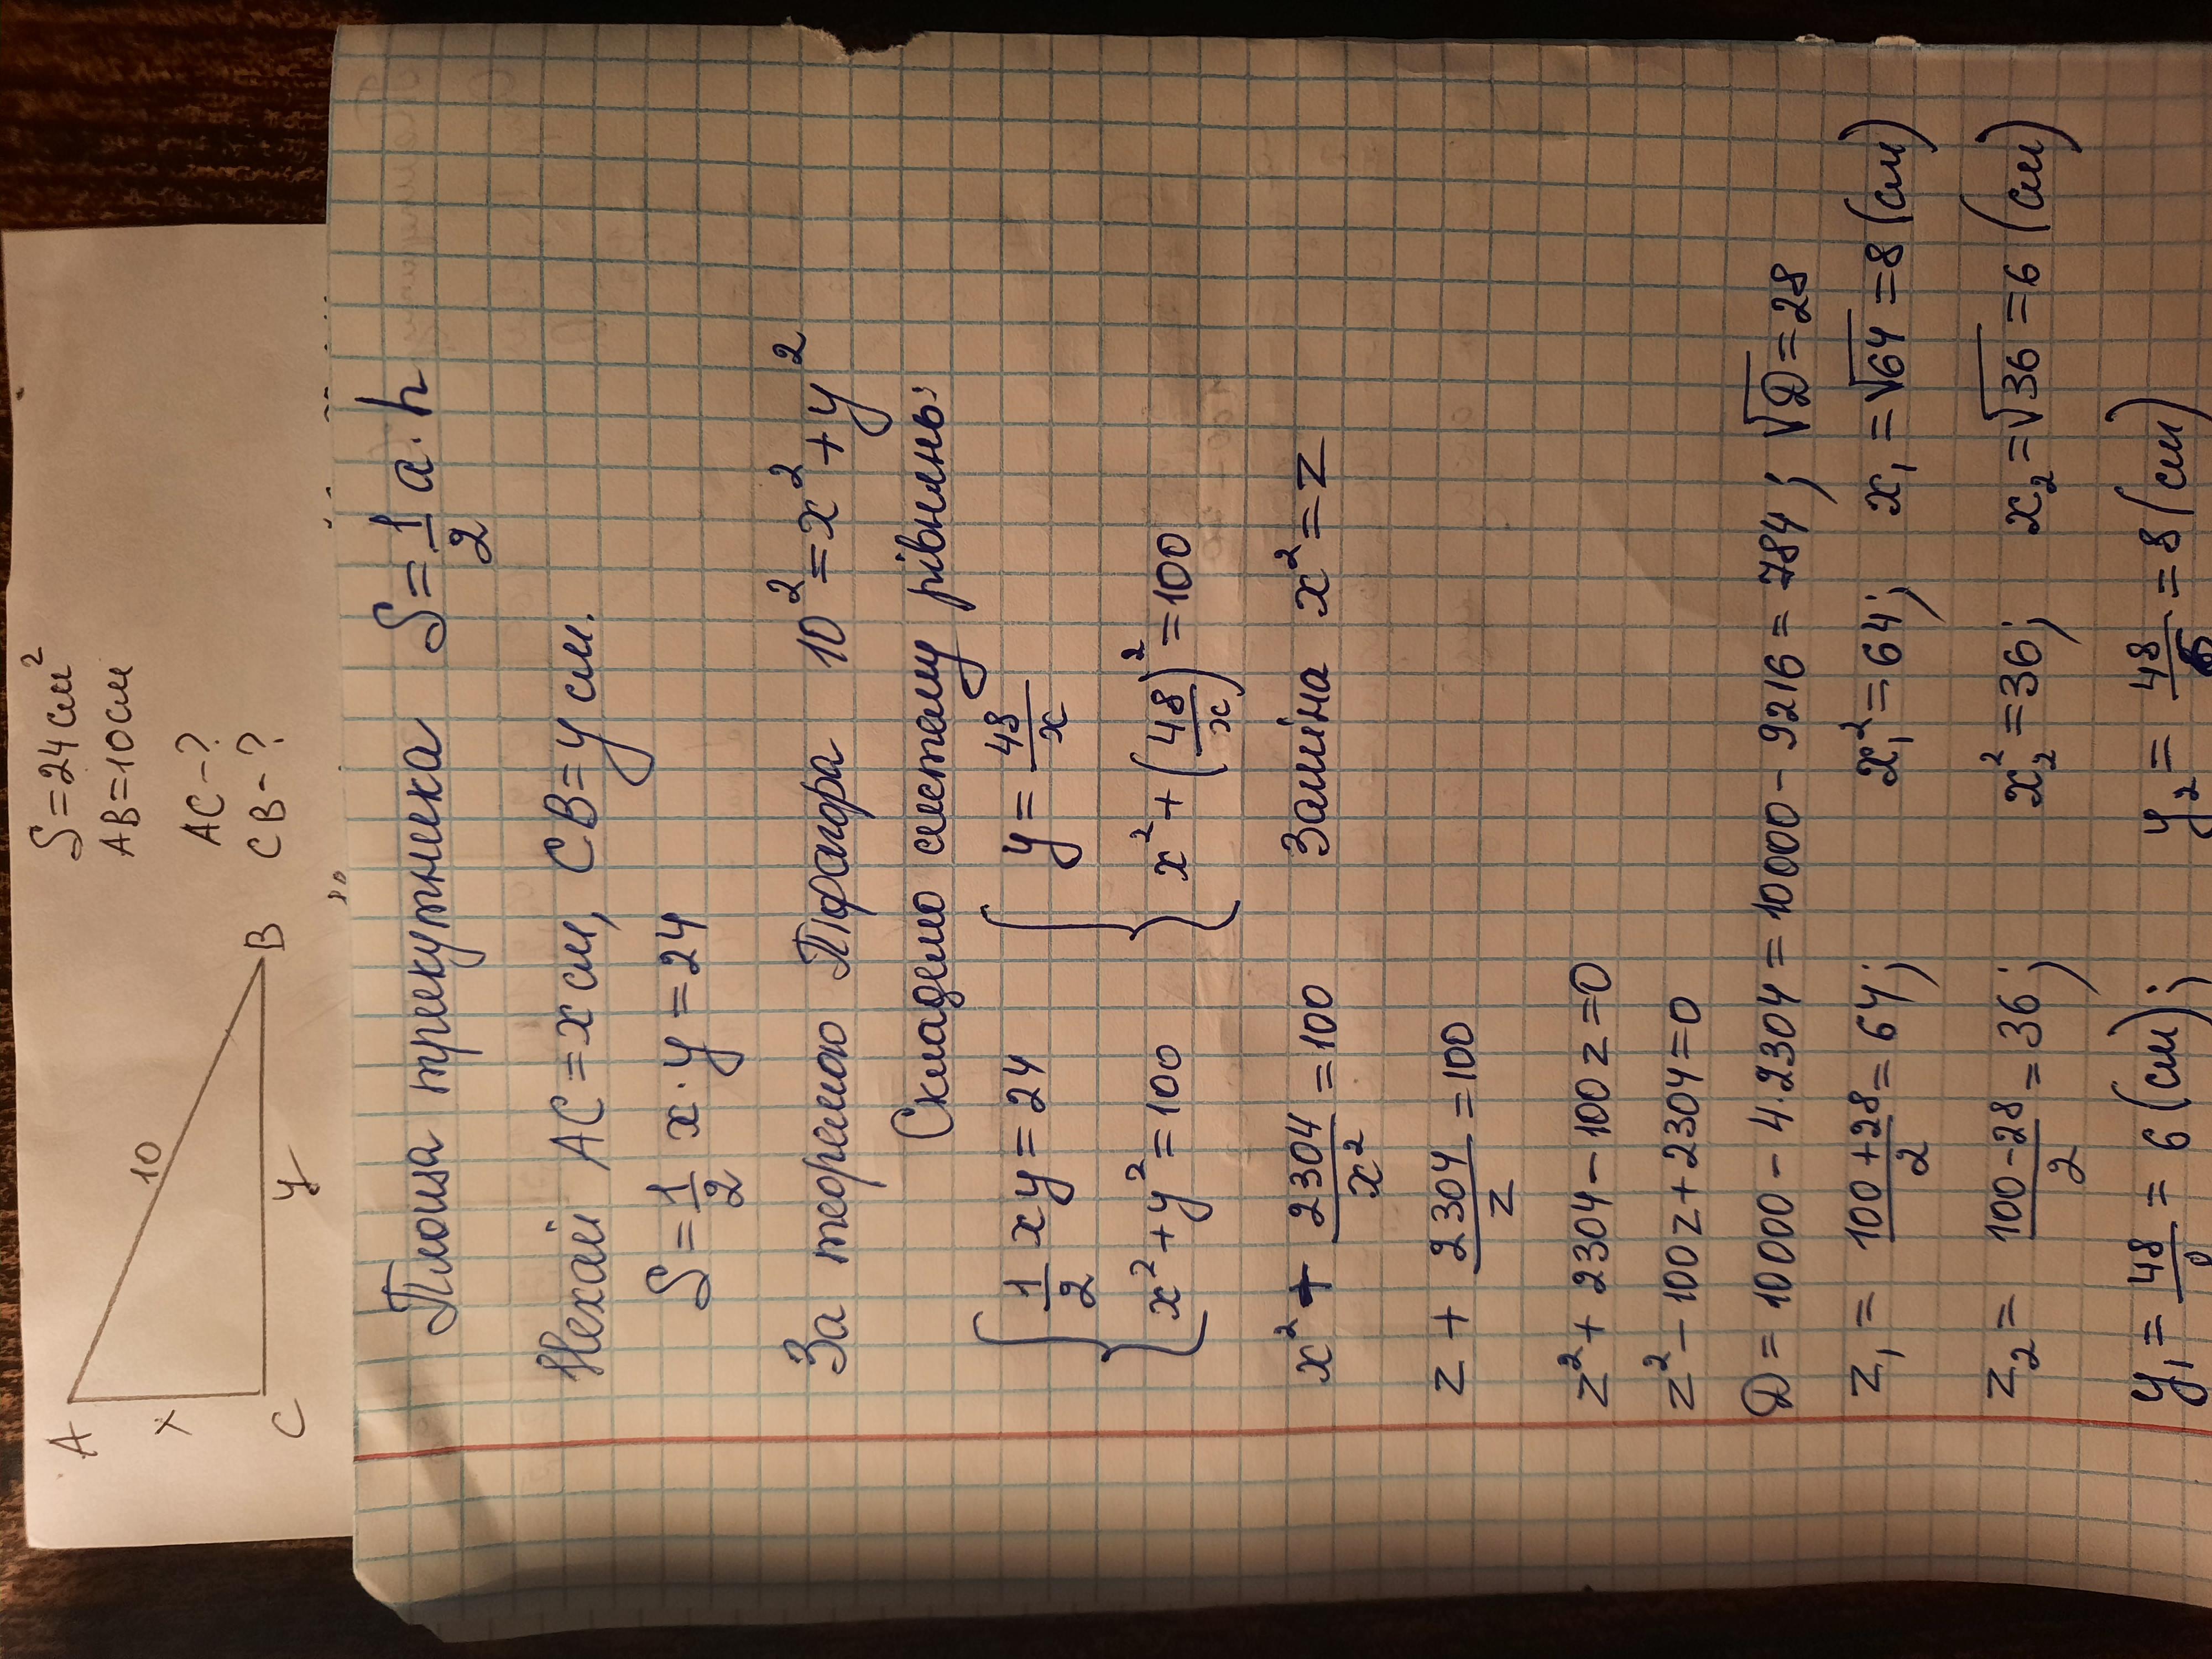 S=24 см²
AB=10 см
AC-?
CB-?
A
10
x
C
y
B
Площа трикутника S=1/2 a·h
Нехай AC=x см, CB=y см.
S=1/2 x·y=24
За теоремою Піфагора 10²=x²+y²
Складемо систему рівнянь:
{ 1/2 xy=24 { y=48/x
{ x²+y²=100 { x²+(48/x)²=100
x²+2304/x²=100 Заміна x²=z
z+2304/z=100
z²+2304-100z=0
z²-100z+2304=0
D=10000-4·2304=10000-9216=784; √D=28
z₁=(100+28)/2=64; x₁²=64; x₁=√64=8 (см)
z₂=(100-28)/2=36; x₂²=36; x₂=√36=6 (см)
y₁=48/8=6 (см); y₂=48/6=8 (см)